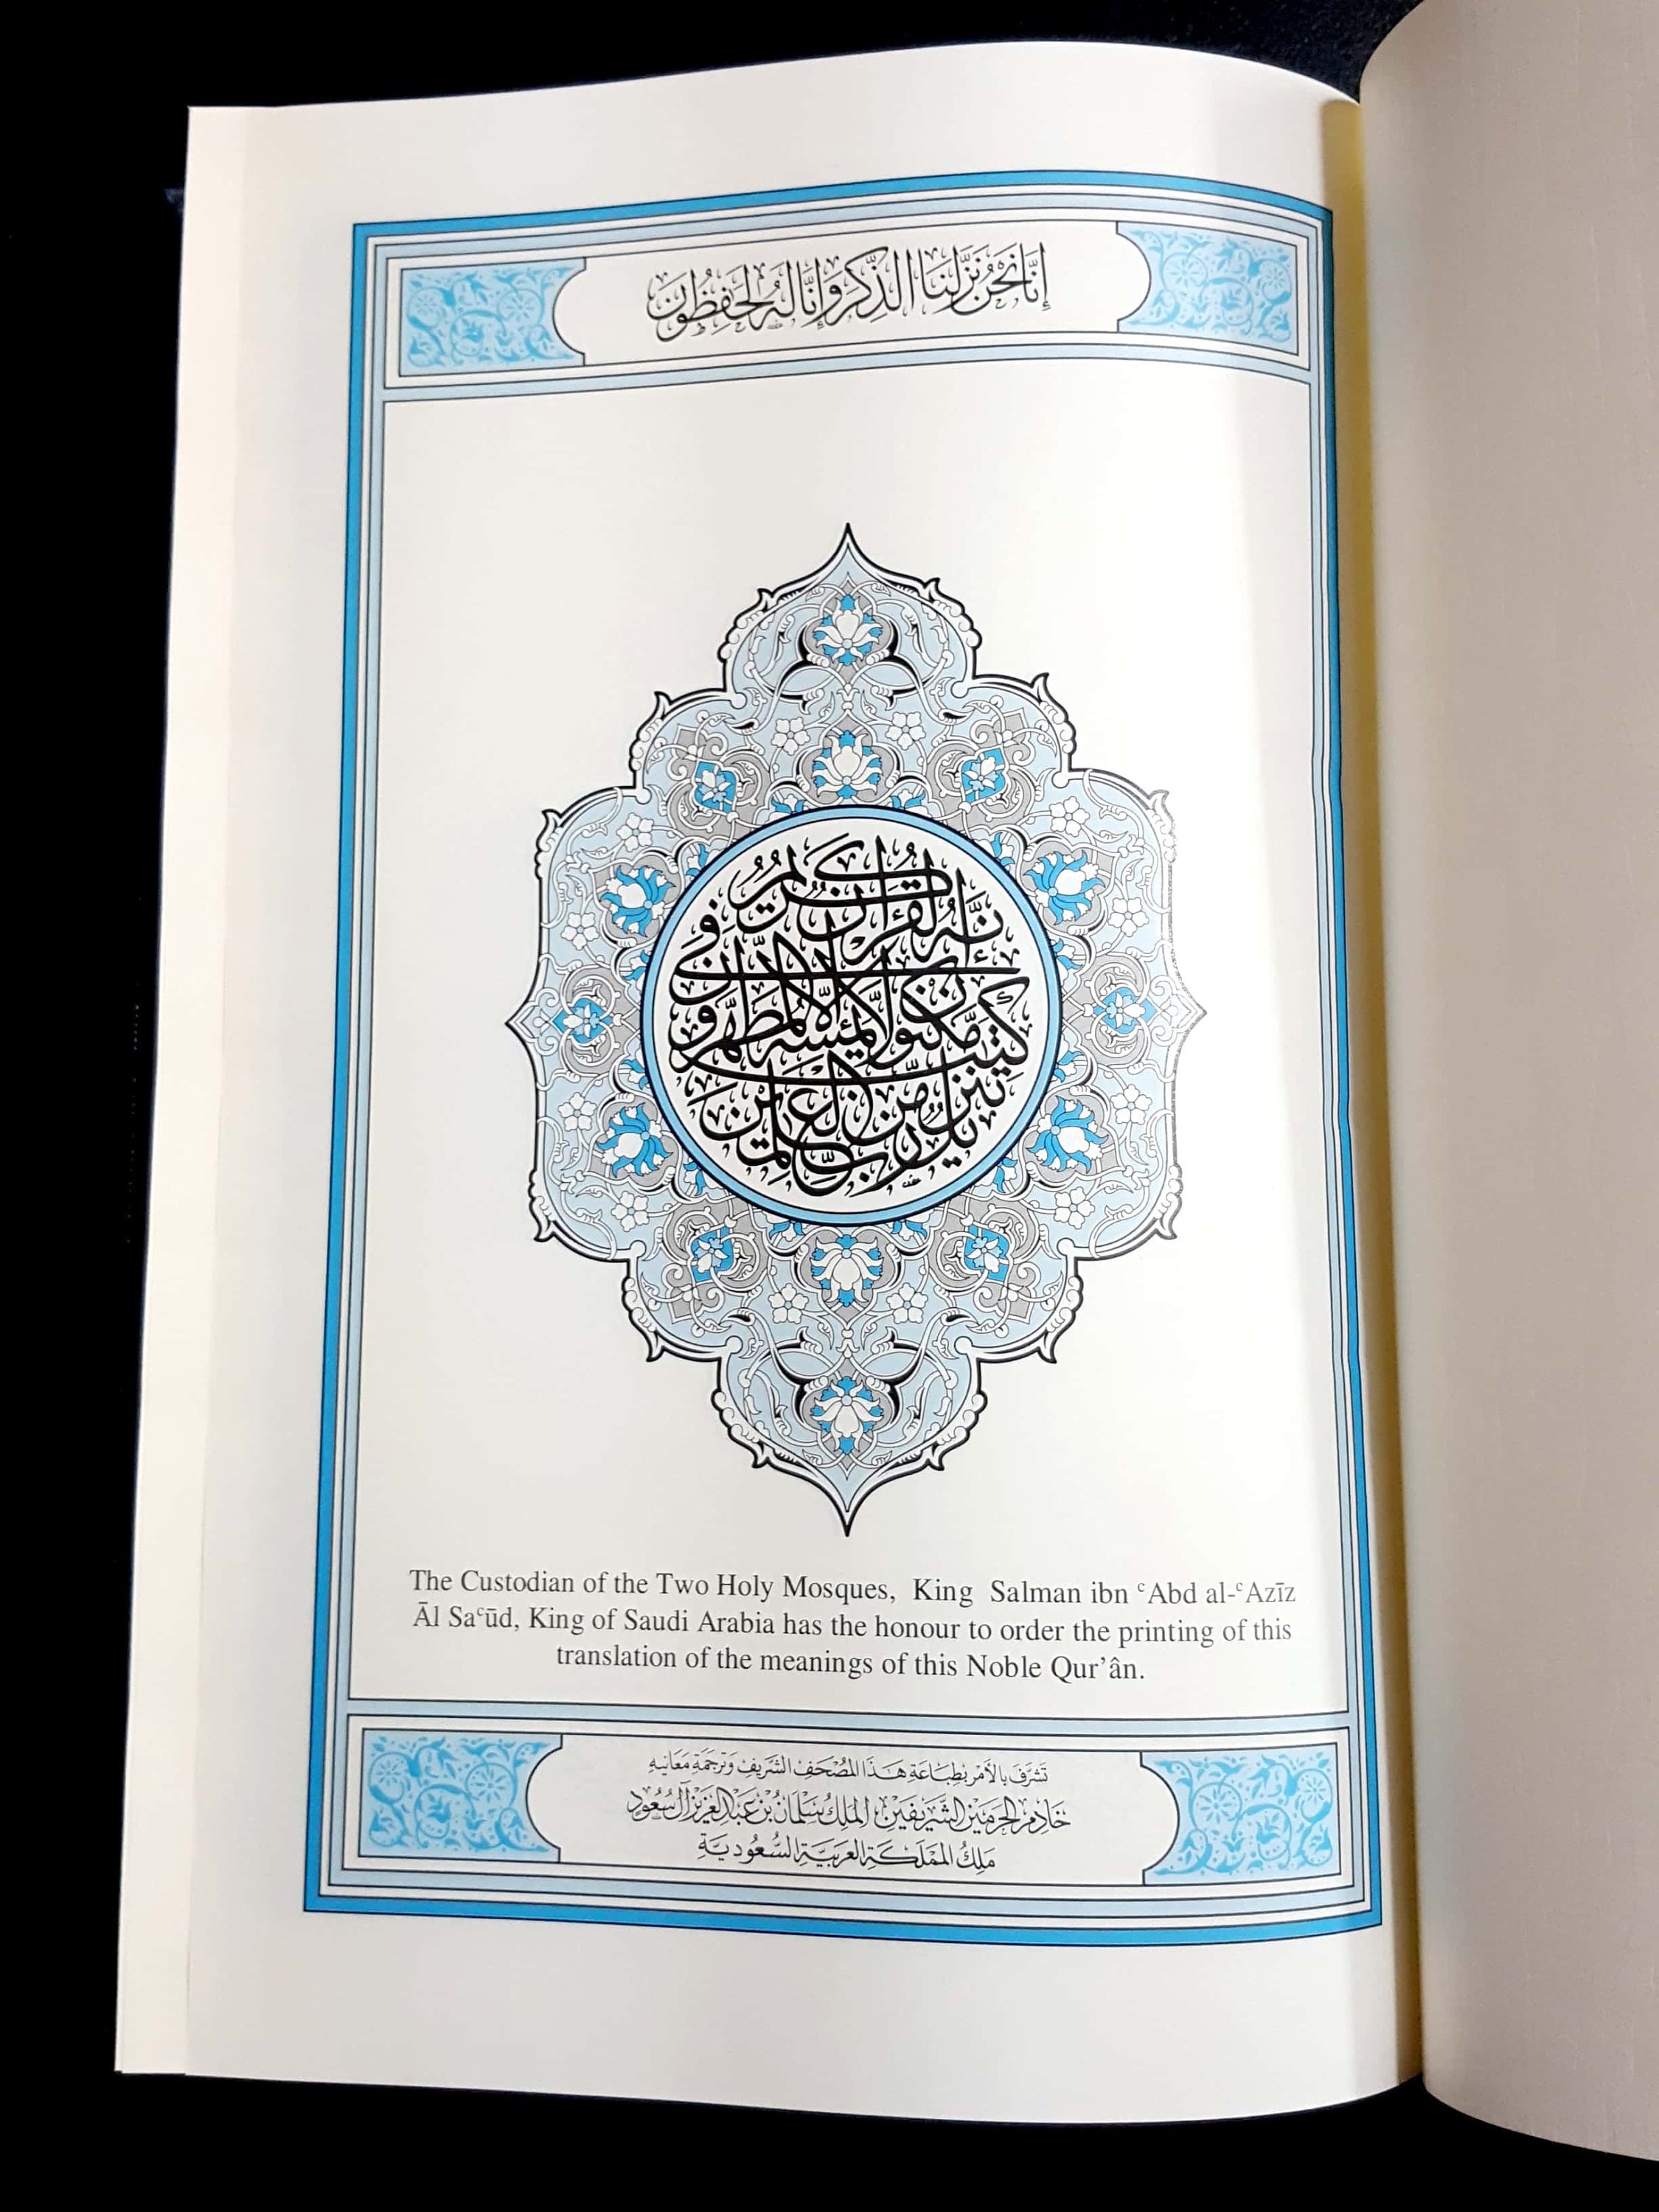 إِنَّا نَحْنُ نَزَّلْنَا الذِّكْرَ وَإِنَّا لَهُ لَحَٰفِظُونَ
إِنَّهُ لَقُرْءَانٌ كَرِيمٌ فِى
كِتَٰبٍ مَّكْنُونٍ لَّا يَمَسُّهُ إِلَّا الْمُطَهَّرُونَ
تَنزِيلٌ مِّن رَّبِّ الْعَٰلَمِينَ
The Custodian of the Two Holy Mosques, King Salman ibn ʿAbd al-ʿAzīz
Āl Saʿūd, King of Saudi Arabia has the honour to order the printing of this
translation of the meanings of this Noble Qur’ân.
تَشَرَّفَ بِالأَمْرِ بِطِبَاعَةِ هَٰذَا المُصْحَفِ الشَّرِيفِ وَتَرْجَمَةِ مَعَانِيهِ
خَادِمُ الحَرَمَيْنِ الشَّرِيفَيْنِ المَلِكُ سَلْمَانُ بْنُ عَبْدِ العَزِيزِ آل سُعُود
مَلِكُ المَمْلَكَةِ العَرَبِيَّةِ السُّعُودِيَّةِ